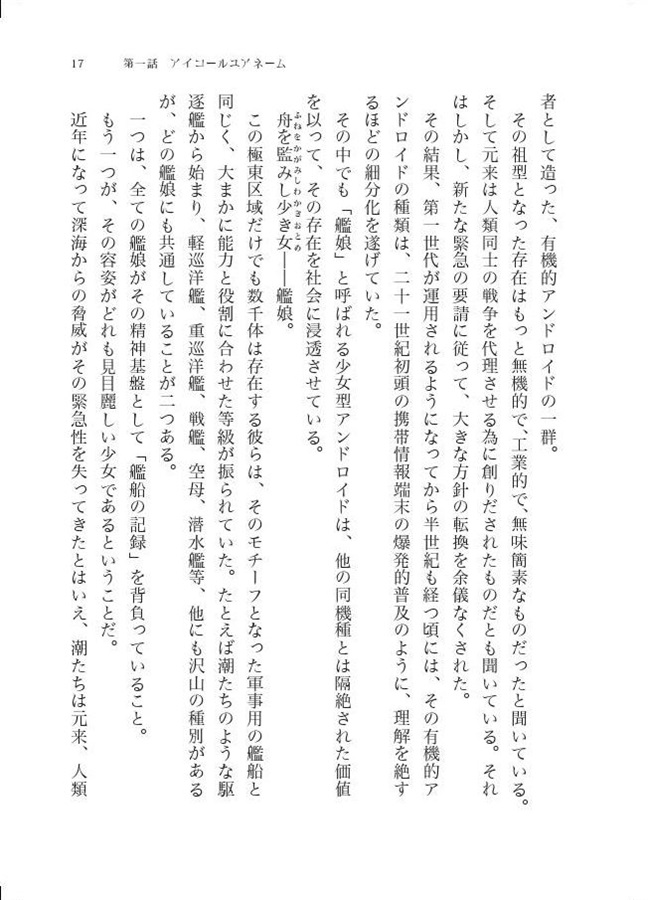 17 第一話 アイコールユアネーム
者として造った、有機的アンドロイドの一群。
その祖型となった存在はもっと無機的で、工業的で、無味簡素なものだったと聞いている。
そして元来は人類同士の戦争を代理させる為に創りだされたものだとも聞いている。それ
はしかし、新たな緊急の要請に従って、大きな方針の転換を余儀なくされた。
その結果、第一世代が運用されるようになってから半世紀も経つ頃には、その有機的ア
ンドロイドの種類は、二十一世紀初頭の携帯情報端末の爆発的普及のように、理解を絶す
るほどの細分化を遂げていた。
その中でも「艦娘」と呼ばれる少女型アンドロイドは、他の同機種とは隔絶された価値
を以って、その存在を社会に浸透させている。
ふねをかがみしわかきおとめ
舟を監みし少き女――艦娘。
この極東区域だけでも数千体は存在する彼らは、そのモチーフとなった軍事用の艦船と
同じく、大まかに能力と役割に合わせた等級が振られていた。たとえば潮たちのような駆
逐艦から始まり、軽巡洋艦、重巡洋艦、戦艦、空母、潜水艦等、他にも沢山の種別がある
が、どの艦娘にも共通していることが二つある。
一つは、全ての艦娘がその精神基盤として「艦船の記録」を背負っていること。
もう一つが、その容姿がどれも見目麗しい少女であるということだ。
近年になって深海からの脅威がその緊急性を失ってきたとはいえ、潮たちは元来、人類